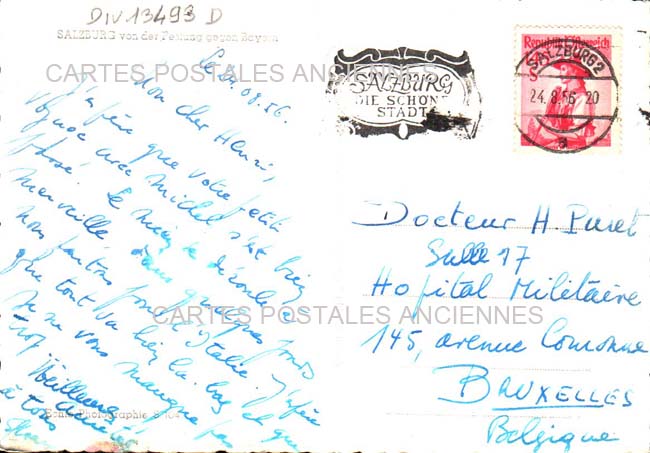 DIV 13493 D
SALZBURG von der Festung gegen Bayern
CARTES POSTALES ANCIENNES
Le 08.56.
Mon cher Henri,
J'espère que votre petit
voyage avec Michel s'est bien
passé. Le mien se déroule à
merveille, dans quelques jours
nous partons pour l'Italie. J'espère
que tout va bien là bas et que
je ne vous manque pas
trop
Meilleures
à tous
Echte Photographie
SALZBURG
DIE SCHÖNE
STADT
Republik Österreich
SALZBURG 2
24.8.56 20
a
Docteur H. Puret
Salle 17
Hopital Militaire
CARTES POSTALES ANCIENNES
145, avenue Couronne
BRUXELLES
Belgique